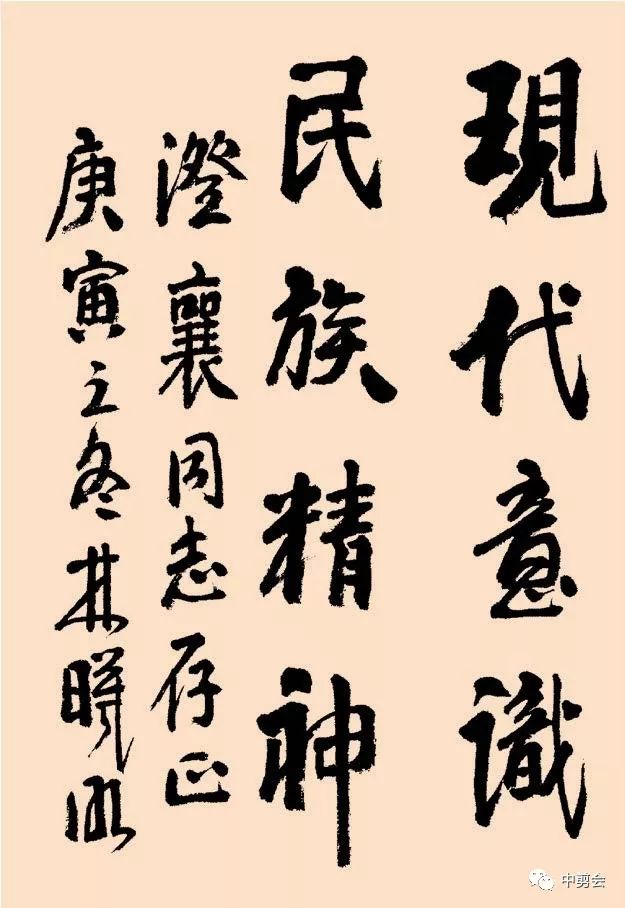 現代意識
民族精神
澄襄同志存正
庚寅之冬林曦明
中剪会